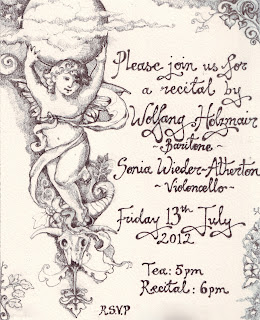 Please join us for
a recital by
Wolfgang Holzmair
~Baritone~
Sonia Wieder-Atherton
~Violoncello~
Friday 13th July
2012
Tea: 5pm
Recital: 6pm
R.S.V.P